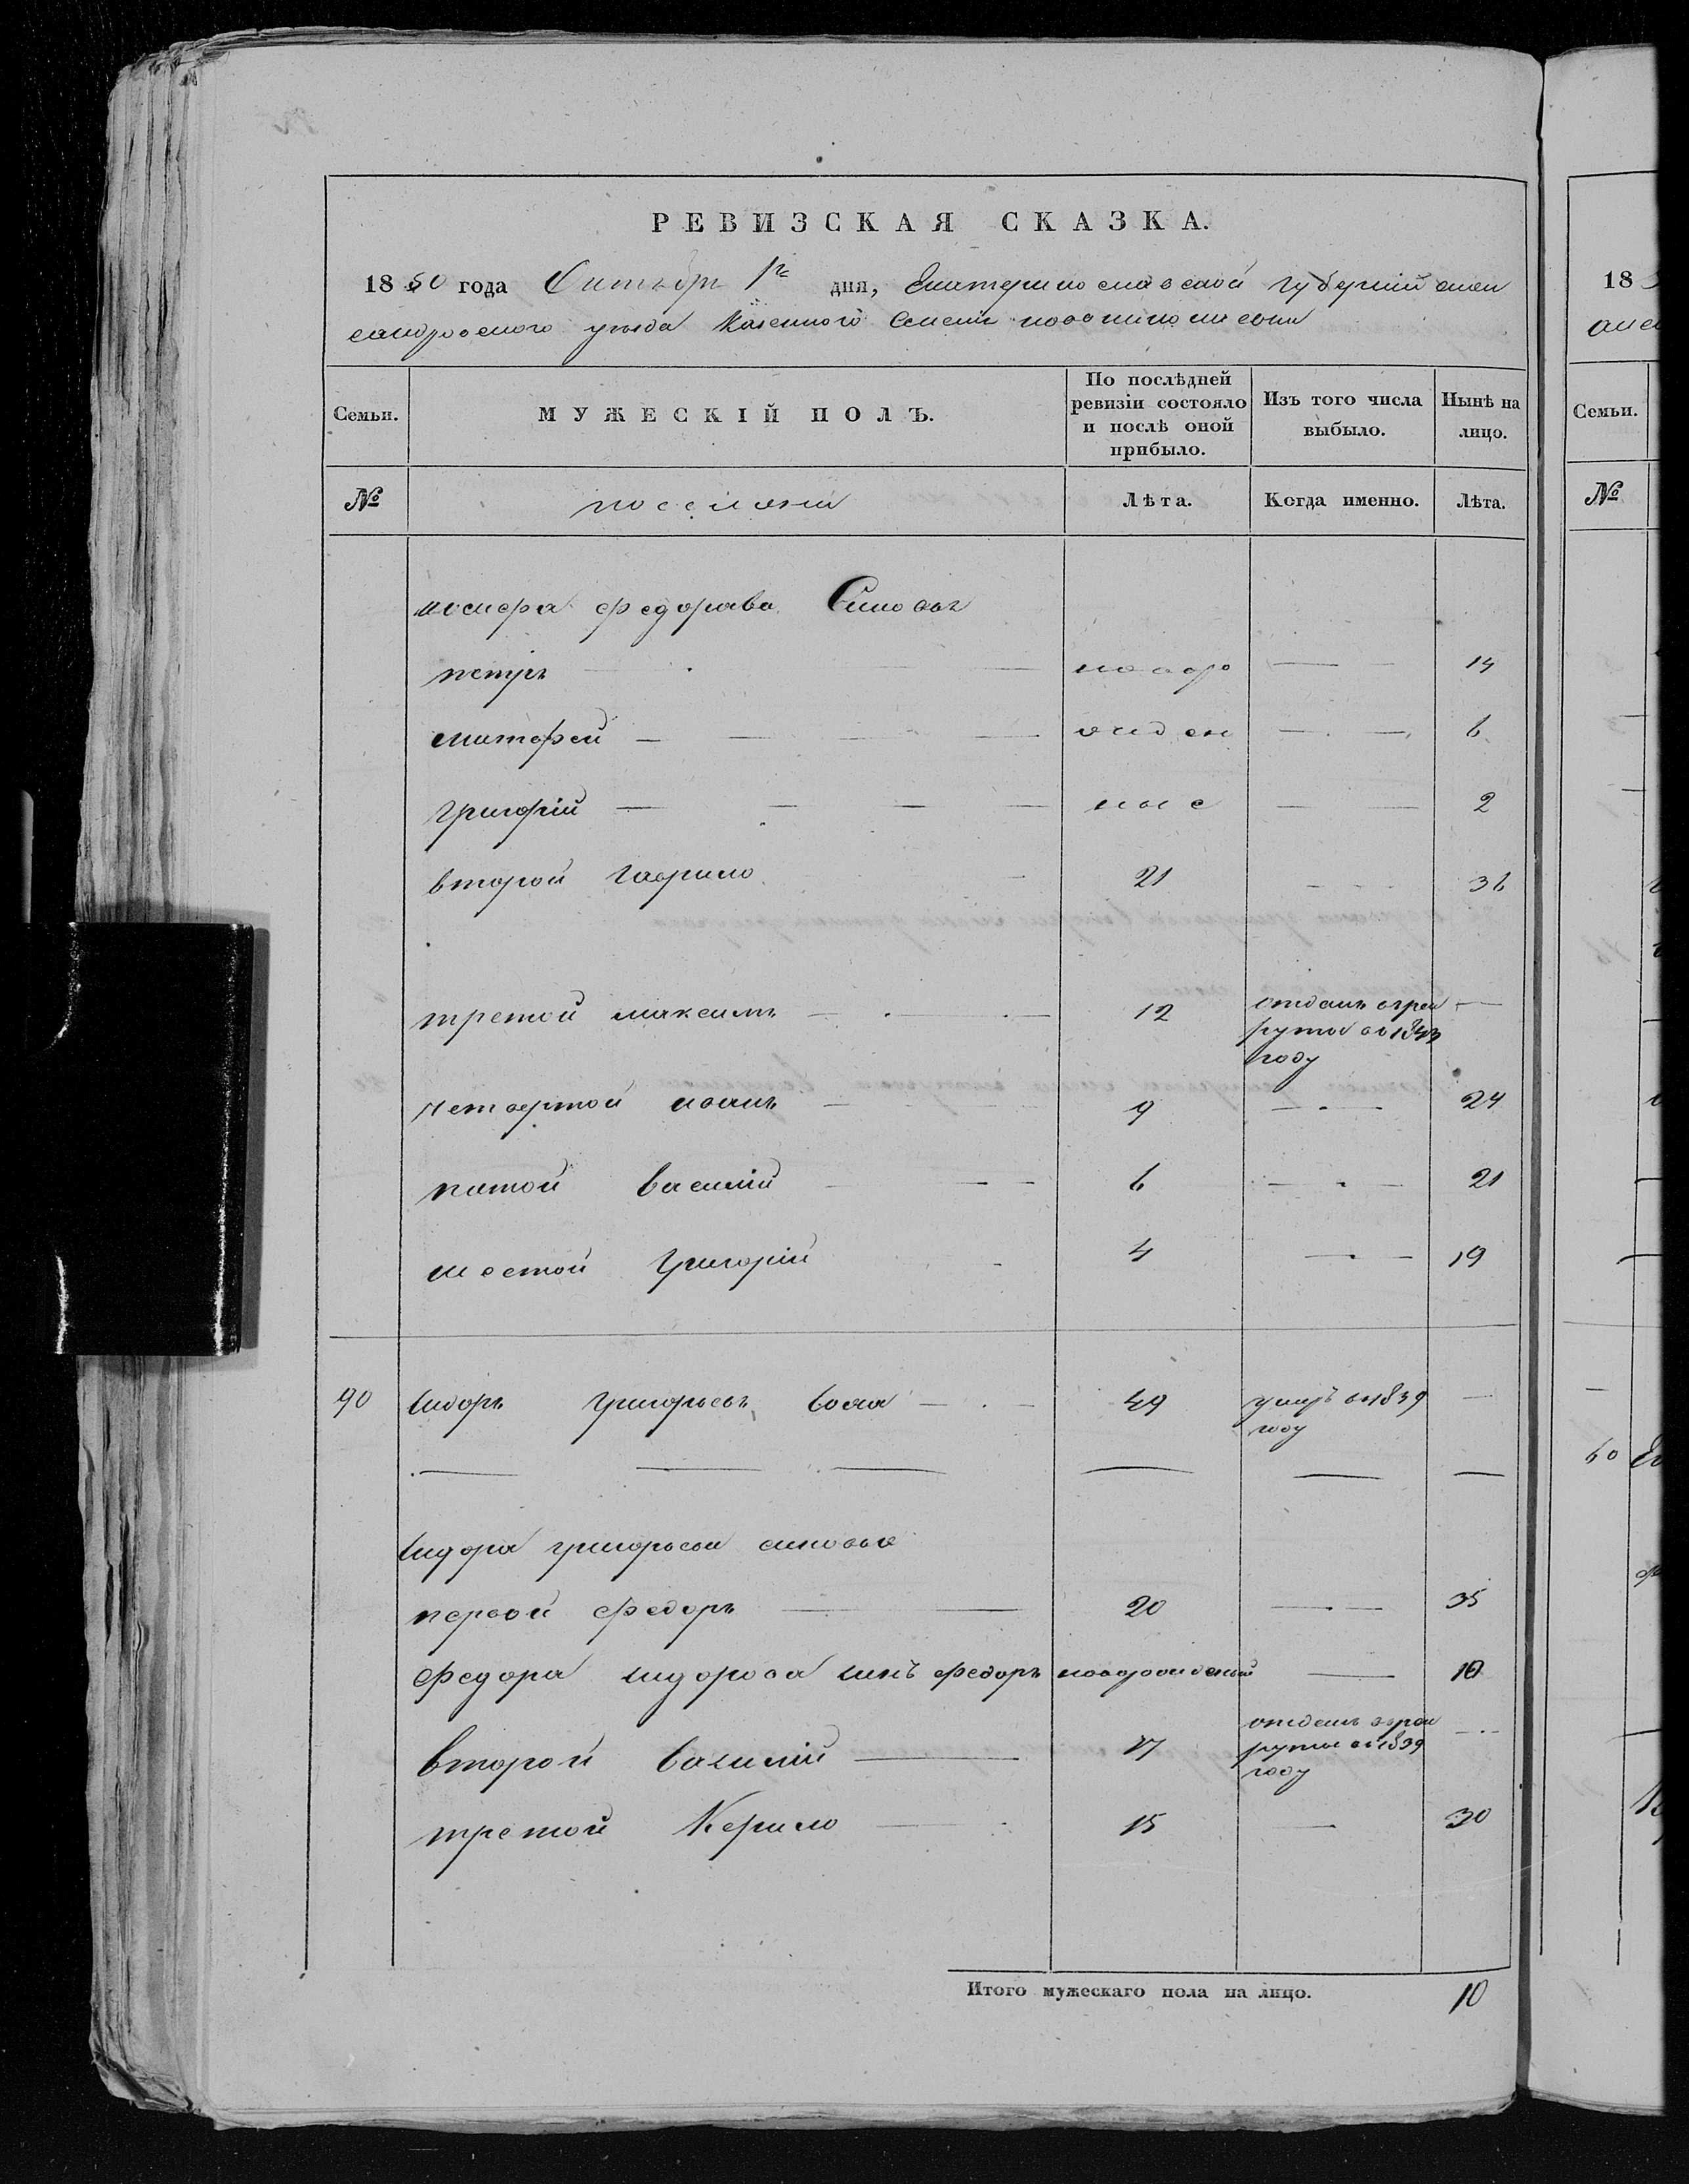 РЕВИЗСКАЯ СКАЗКА.
1850 года Октября 1го дня, Екатеринославской губерніи алек
сандровского уезда Казенного Селения новониколаевки
Семьи. МУЖЕСКІЙ ПОЛЪ. По послѣдней ревизіи состояло и послѣ оной прибыло. Изъ того числа выбыло. Нынѣ на лицо.
№ поселяни Лѣта. Когда именно. Лѣта.
федорава Синовья
петръ — новоро — 14
матофей — жден — 6
григорій — ные — 2
второй гаврило 21 — 36
третой максимъ — 12 отданъ в рек
руты в 1843
году —
четвертой иванъ — 9 — 24
пятой василій — 6 — 21
шестой григорій 4 — 19
90 Сидоръ григорьевъ — 49 умеръ в 1839
году —
Сидора григорьева синовья
первой федоръ — 20 — 35
федора сидорова синъ федоръ новорожденый — 10
второй василій — 17 отданъ в рек
руты в 1839
году —
третой Керило — 15 — 30
Итого мужескаго пола на лицо. 10
18
Семьи.
№
60